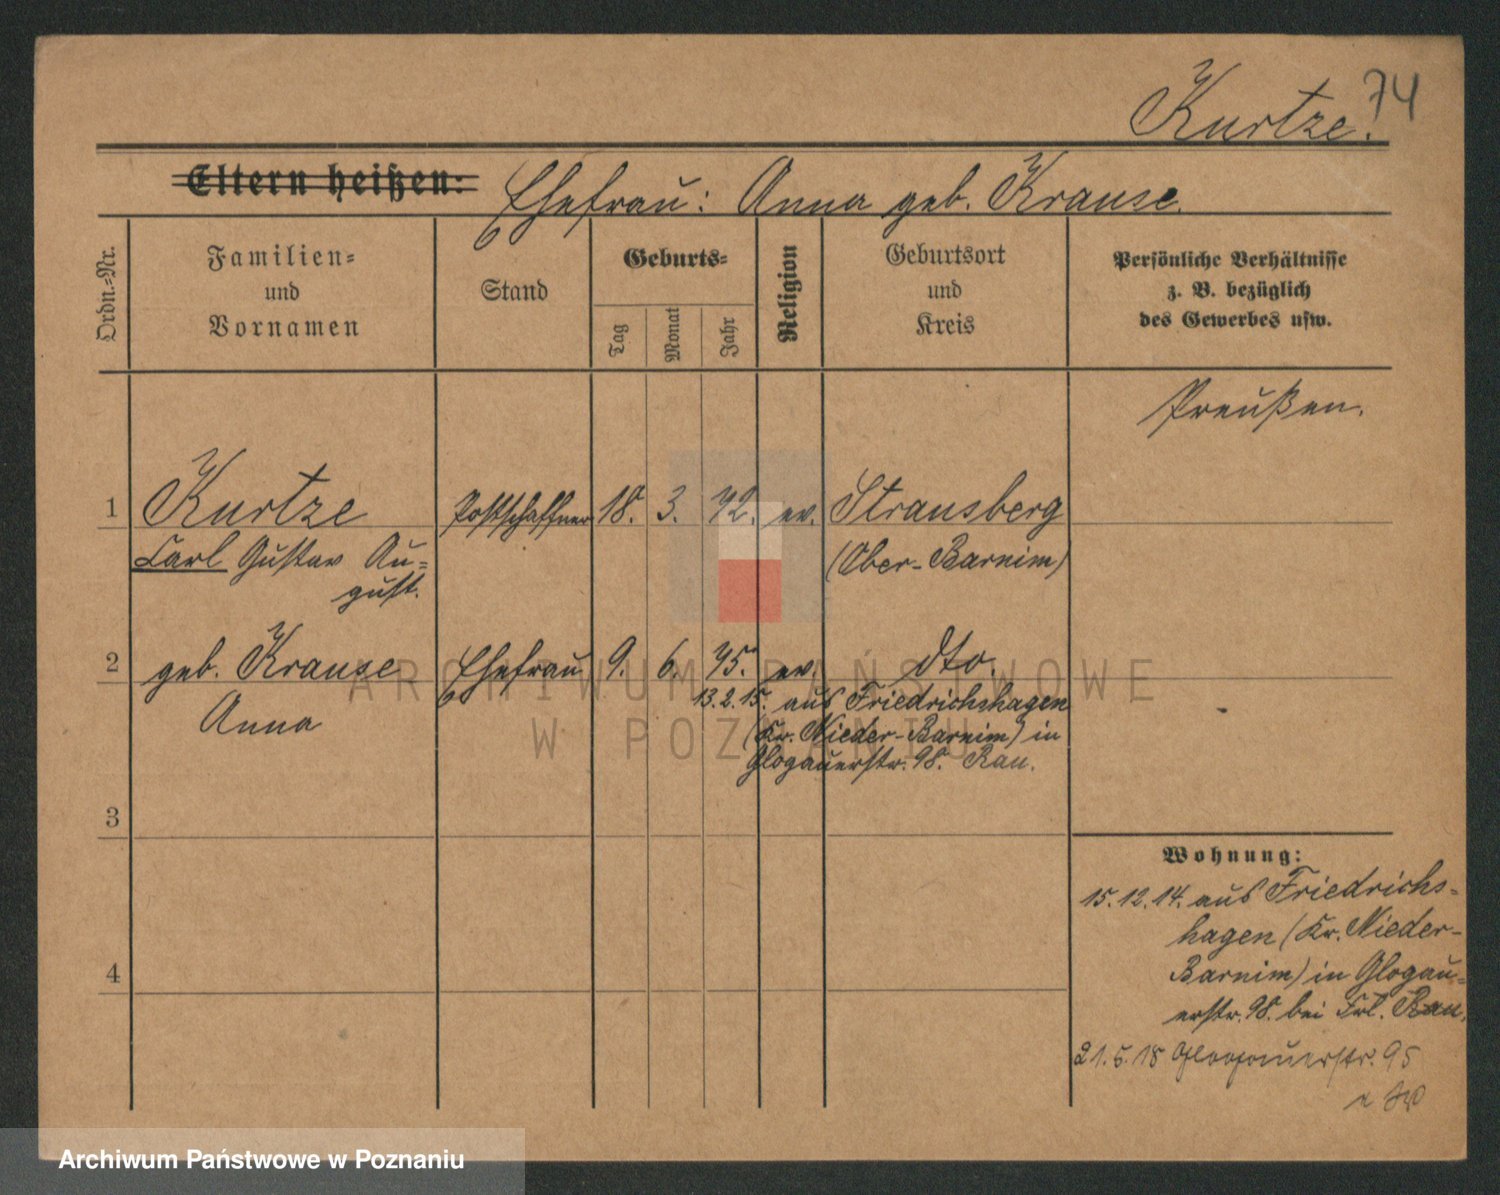 Kurtze.
74
Eltern heißen: Ehefrau: Anna geb. Krause.
Ordn.-Nr.
Familien-
und
Vornamen
Stand
Geburts-
Tag
Monat
Jahr
Religion
Geburtsort
und
Kreis
Persönliche Verhältnisse
z. B. bezüglich
des Gewerbes usw.
Preußen.
1 Kurtze Postschaffner 18. 3. 72. ev. Strausberg
Carl Gustav Au-
gust.
(Ober-Barnim)
2 geb. Krause Ehefrau 9. 6. 75. ev. dto.
Anna
13.2.15. aus Friedrichshagen
(Kr. Nieder-Barnim) in
Glogauerstr. 98. Rau.
3
4
Wohnung:
15.12.14. aus Friedrichs-
hagen (Kr. Nieder-
Barnim) in Glogau-
erstr. 98. bei Frl. Rau.
21.5.18 Glogauerstr. 95
ARCHIWUM PAŃSTWOWE
W POZNANIU
Archiwum Państwowe w Poznaniu